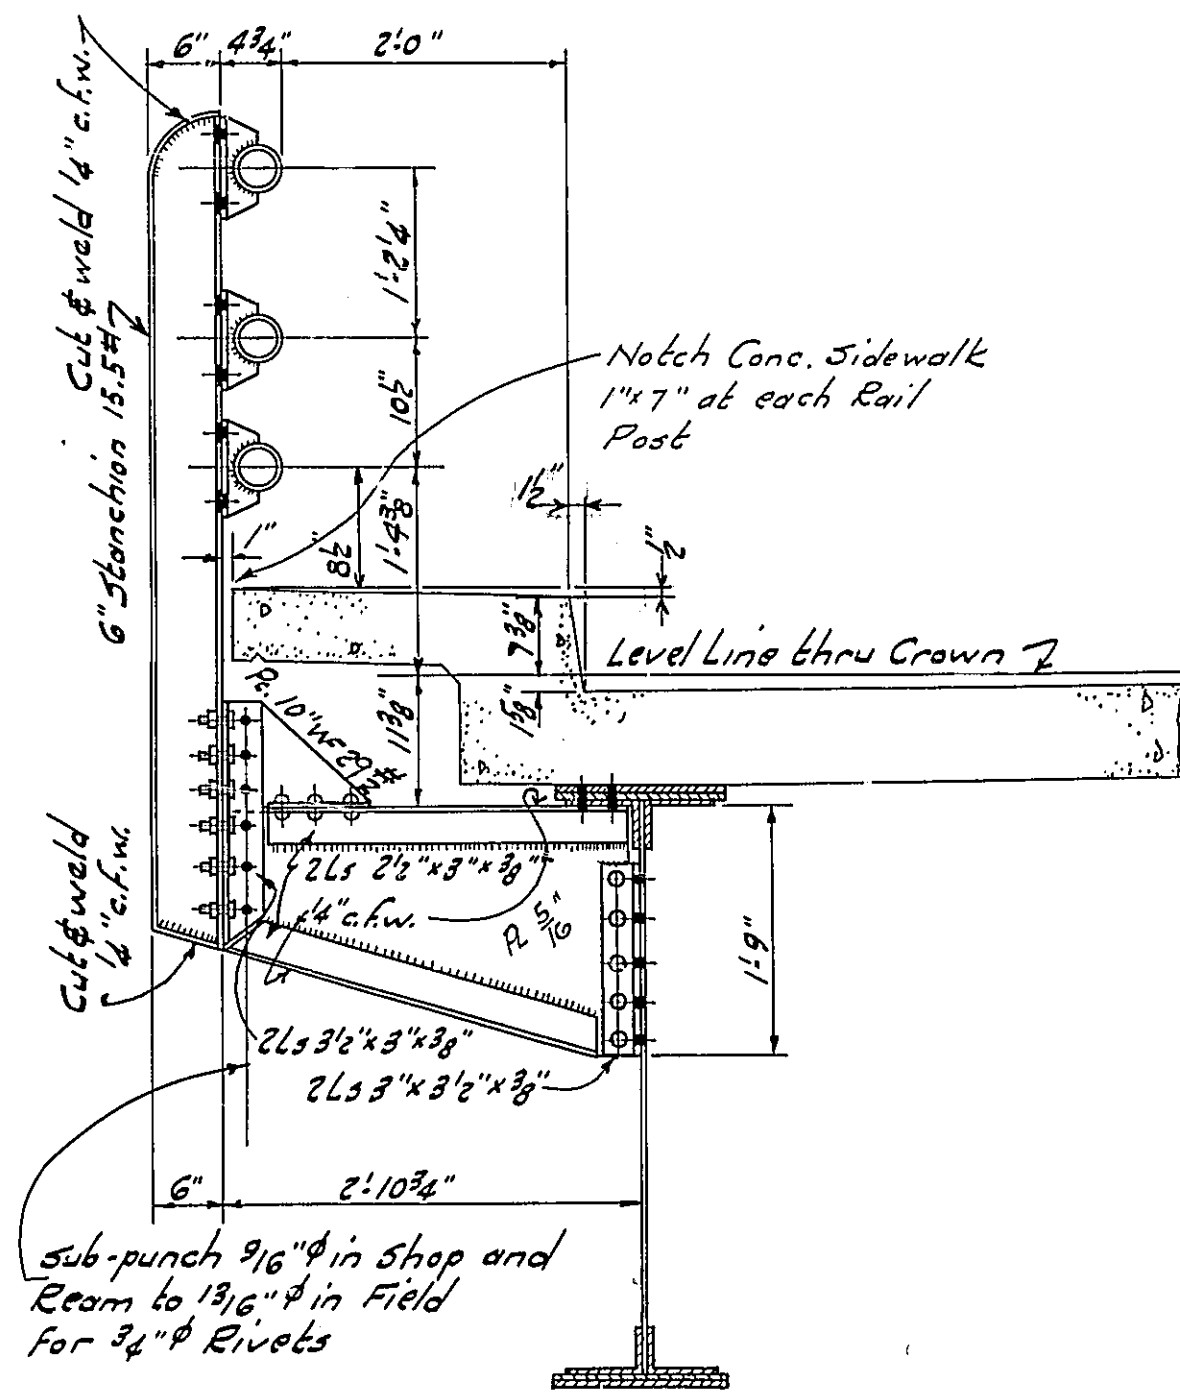 6" 4 3/4" 2'-0"
Cut & weld 1/4" c.f.w.
6" Stanchion 15.5#
1'-2 1/4"
10 1/2"
Notch Conc. Sidewalk
1"x7" at each Rail
Post
1 1/2"
1'-4 3/8"
8 1/2"
1"
1/2"
7 3/8"
Level Line thru Crown
1 5/8"
11 3/8"
10" WF 29#
2 Ls 2 1/2" x 3" x 3/8"
1/4" c.f.w.
PL 5/16"
1'-9"
Cut & weld
1/4" c.f.w.
2 Ls 3 1/2" x 3" x 3/8"
2 Ls 3" x 3 1/2" x 3/8"
6" 2'-10 3/4"
Sub-punch 9/16" ϕ in Shop and
Ream to 13/16" ϕ in Field
for 3/4" ϕ Rivets